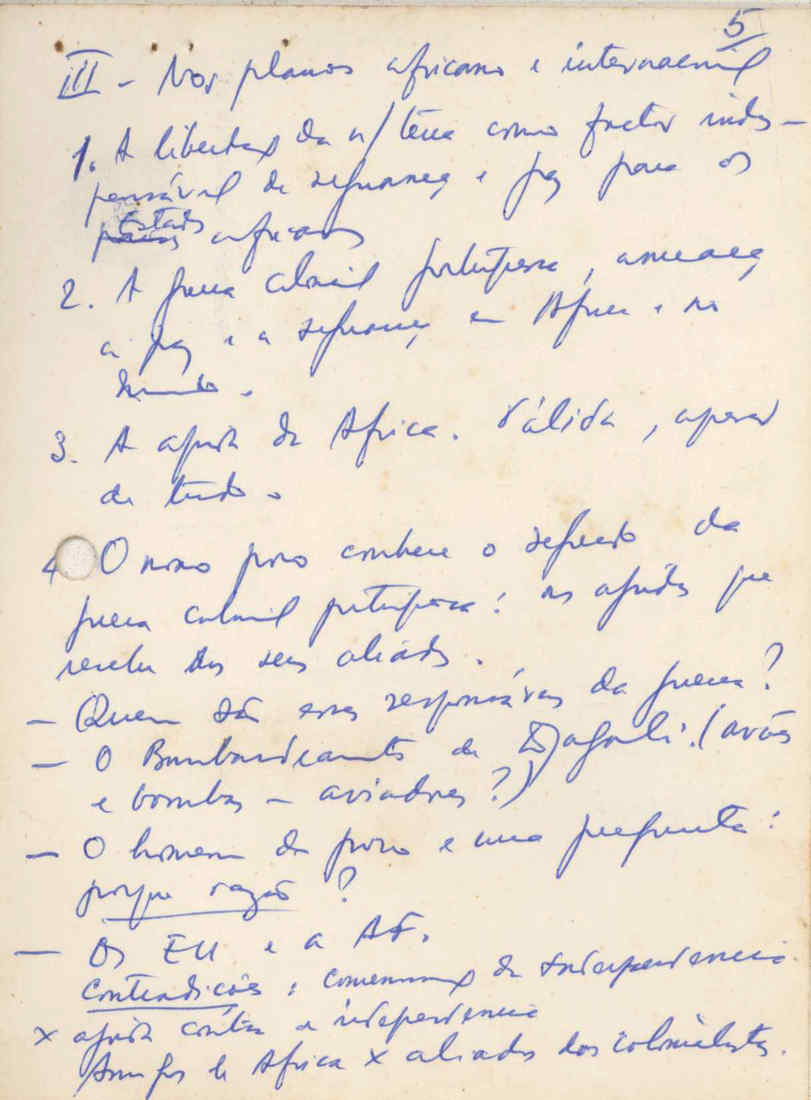 5
III - Nos planos africano e internacional
1. A libertação da n/ terra como factor indis-
pensável de segurança e paz para os
países Estados africanos
2. A guerra colonial portuguesa, ameaça
a paz e a segurança em Africa e no
Mundo.
3. A ajuda de Africa. Válida, apesar
de tudo.
4. O nosso povo conhece o segredo da
guerra colonial portuguesa: as ajudas que
recebe dos seus aliados.
- Quem são esses responsáveis da guerra?
- O Bombardeamento de (aviões
e bombas - aviadores?)
- O homem do povo e uma pergunta:
porque razão?
- Os EU e a AF.
Contradições: da Independencia
x ajuda contra a independencia
Amigos de Africa x aliados dos colonialistas.